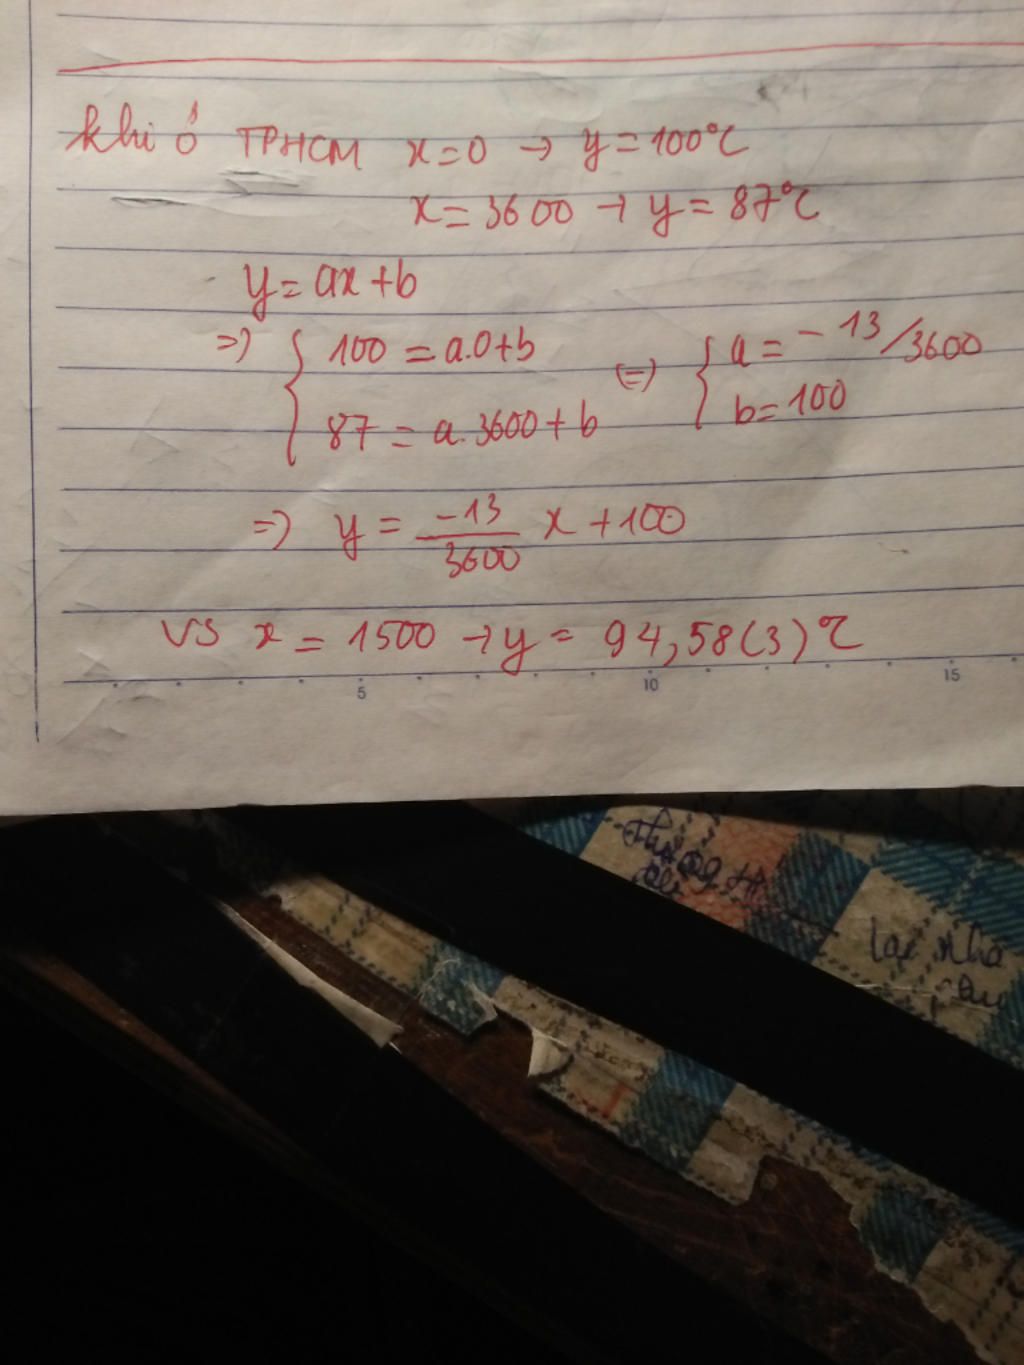 khi ở TPHCM x=0 → y=100°C
x=3600 → y=87°C
y=ax+b
=> { 100 = a.0+b
87 = a.3600+b
(=) { a = -13/3600
b=100
=> y = -13/3600 x +100
VS x = 1500 → y = 94,58(3)°C
5 10 15
lạc nha